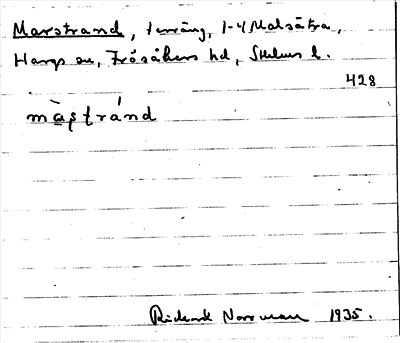 Marstrand, terräng, 1-4 Malsätra,
Hargs sn, Frösåkers hd, Sthlms l.
428
màstránd
Rickard Norrman 1935.